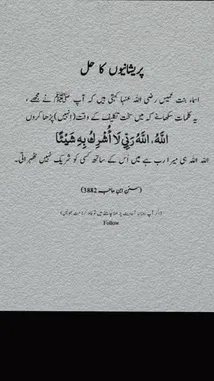 پریشانیوں کا حل
اسماء بنت عمیس رضی اللہ عنہا کہتی ہیں کہ آپ ﷺ نے مجھے
یہ کلمات سکھائے کہ میں سخت تکلیف کے وقت (انہیں) پڑھا کروں
اَللهُ، اَللهُ رَبِّيْ لَا أُشْرِكُ بِهِ شَيْئًا
اللہ اللہ ہی میرا رب ہے میں اُس کے ساتھ کسی کو شریک نہیں ٹھہراتی۔
(سنن ابن ماجہ 3882)
Follow